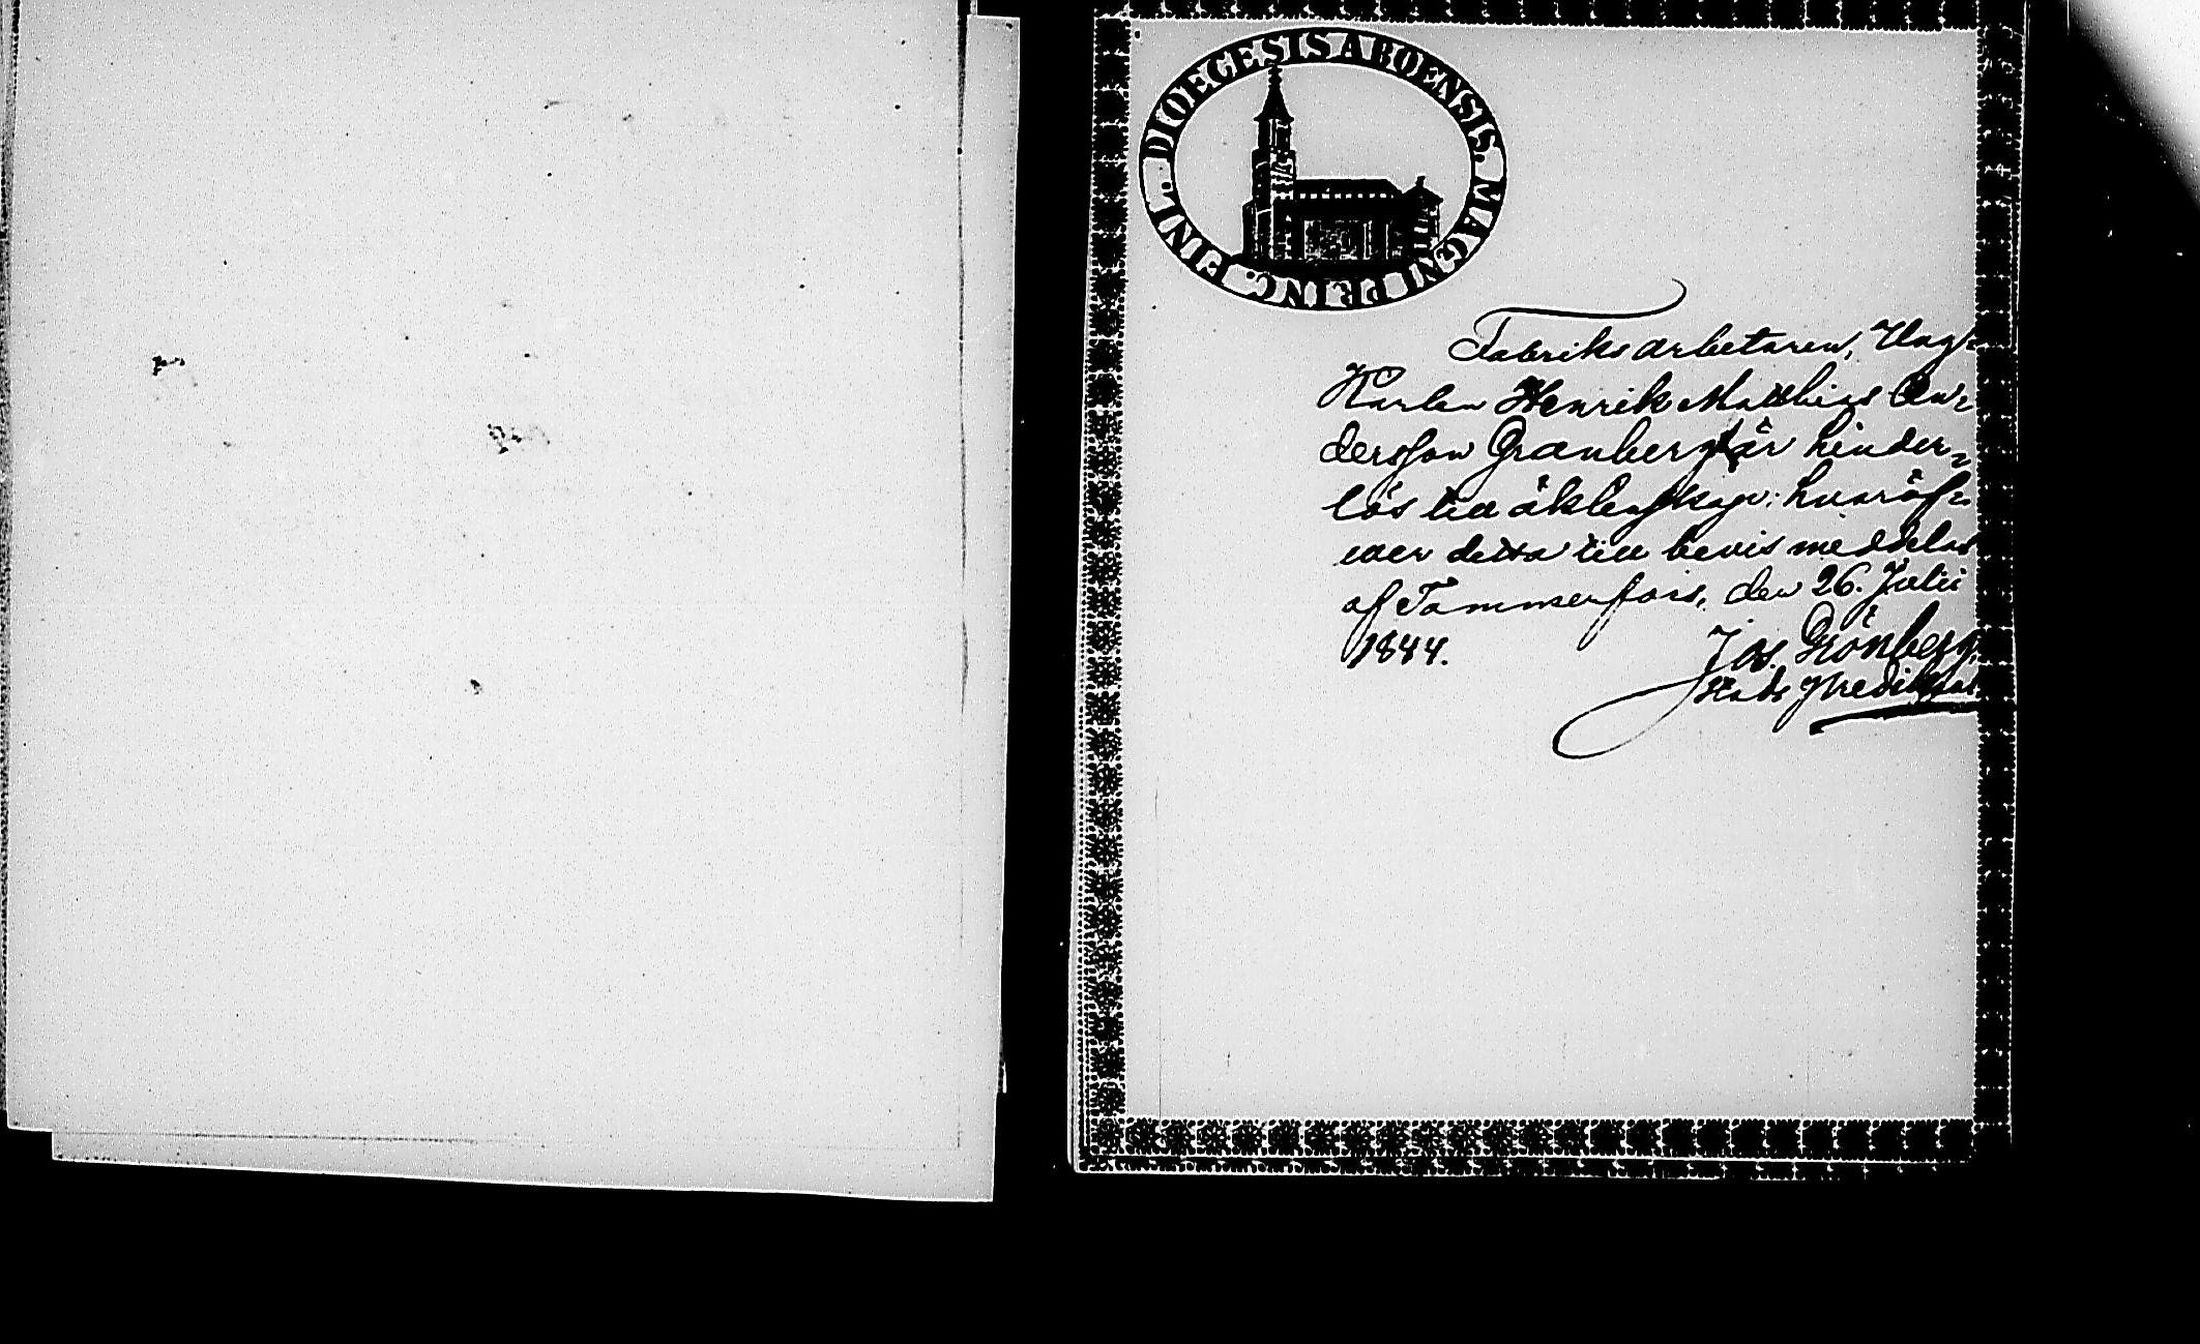 DIOECESIS ABOENSIS. MAGNI PRINC. FINL.
Fabriks arbetaren, Ung=
Karlen Henrik Matthias An=
dersson Granberg är hinder=
lös till äktenskap; hvaröf=
wer detta till bevis meddelas
af Tammerfors, den 26. Julii
1844. Jos. Grönberg.
Stads Predikant